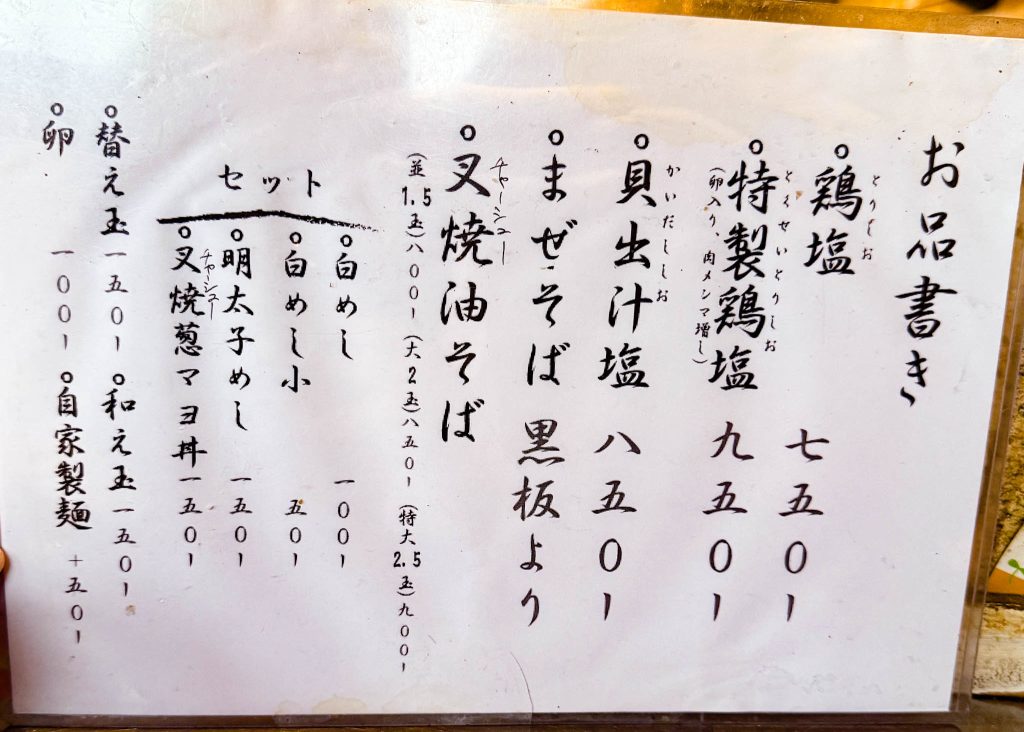 お品書き
とりしお
○鶏塩 七五〇ー
とくせいとりしお
○特製鶏塩 九五〇ー
(卵入り、肉メンマ増し)
かいだししお
○貝出汁塩 八五〇ー
○まぜそば 黒板より
チャーシュー
○叉焼油そば
(並1.5玉)八〇〇ー (大2玉)八五〇ー (特大2.5玉)九〇〇ー
セット
○白めし 一〇〇ー
○白めし小 五〇ー
○明太子めし 一五〇ー
チャーシュー
○叉焼葱マヨ丼 一五〇ー
○替え玉 一五〇ー ○和え玉 一五〇ー
○卵 一〇〇ー ○自家製麺 +五〇ー